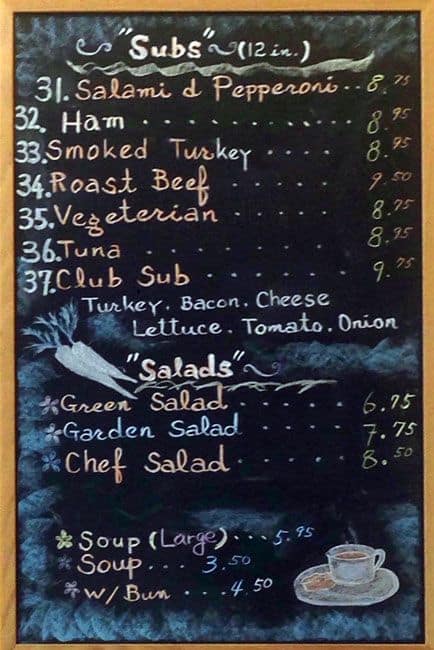 "Subs" (12 in.)
31. Salami & Pepperoni .. 8.75
32. Ham . . . . . . . . . 8.95
33. Smoked Turkey . . . . 8.95
34. Roast Beef . . . . . 9.50
35. Vegeterian . . . . . 8.75
36. Tuna . . . . . . . 8.95
37. Club Sub . . . . . . 9.75
Turkey. Bacon. Cheese
Lettuce. Tomato. Onion
"Salads"
Green Salad . . . . . . 6.75
Garden Salad . . . . . 7.75
Chef Salad . . . . . . 8.50
Soup (Large) ... 5.95
Soup ... 3.50
w/ Bun ... 4.50